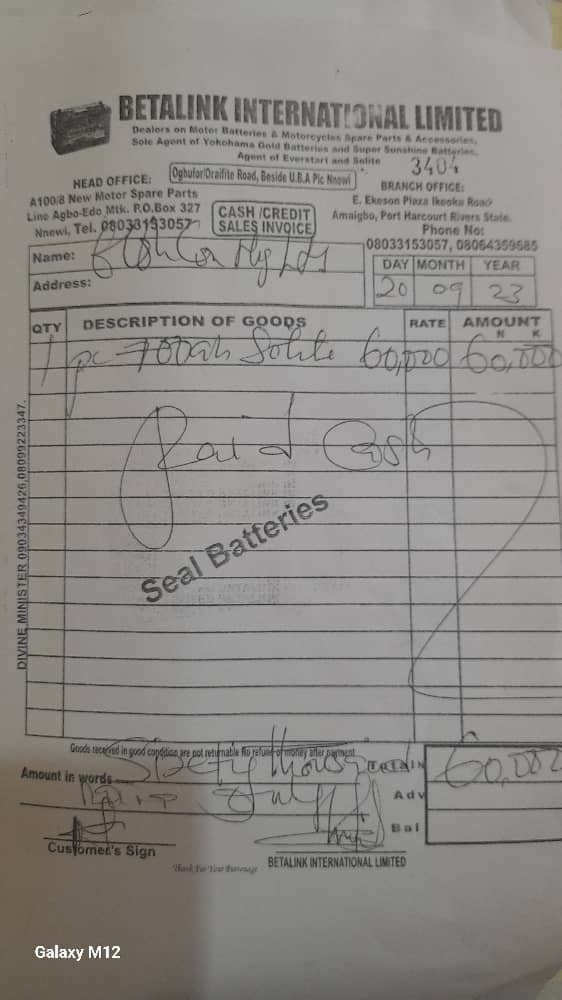 BETALINK INTERNATIONAL LIMITED
Dealers on Motor Batteries & Motorcycles Spare Parts & Accessories,
Sole Agent of Yokohama Gold Batteries and Super Sunshine Batteries,
Agent of Everstart and Solite
3404
HEAD OFFICE:
A100/8 New Motor Spare Parts
Line Agbo-Edo Mtk. P.O.Box 327
Nnewi, Tel. 08033153057
Ogbufor/Oraifite Road, Beside U.B.A Plc Nnewi
CASH /CREDIT
SALES INVOICE
BRANCH OFFICE:
E. Ekeson Plaza Ikeoku Road
Amaigbo, Port Harcourt Rivers State.
Phone No:
08033153057, 08064359685
Name:
Address:
DAY MONTH YEAR
20 09 23
QTY DESCRIPTION OF GOODS RATE AMOUNT
N K
1 pc Solite 60,000 60,000
Paid Cash
Seal Batteries
DIVINE MINISTER 09034349426,08099223347.
Goods received in good condition are not returnable No refund of money after payment
Amount in words Sixty thousand
60,000
Adv
Bal
Customer's Sign
BETALINK INTERNATIONAL LIMITED
Thank For Your Patronage
Galaxy M12